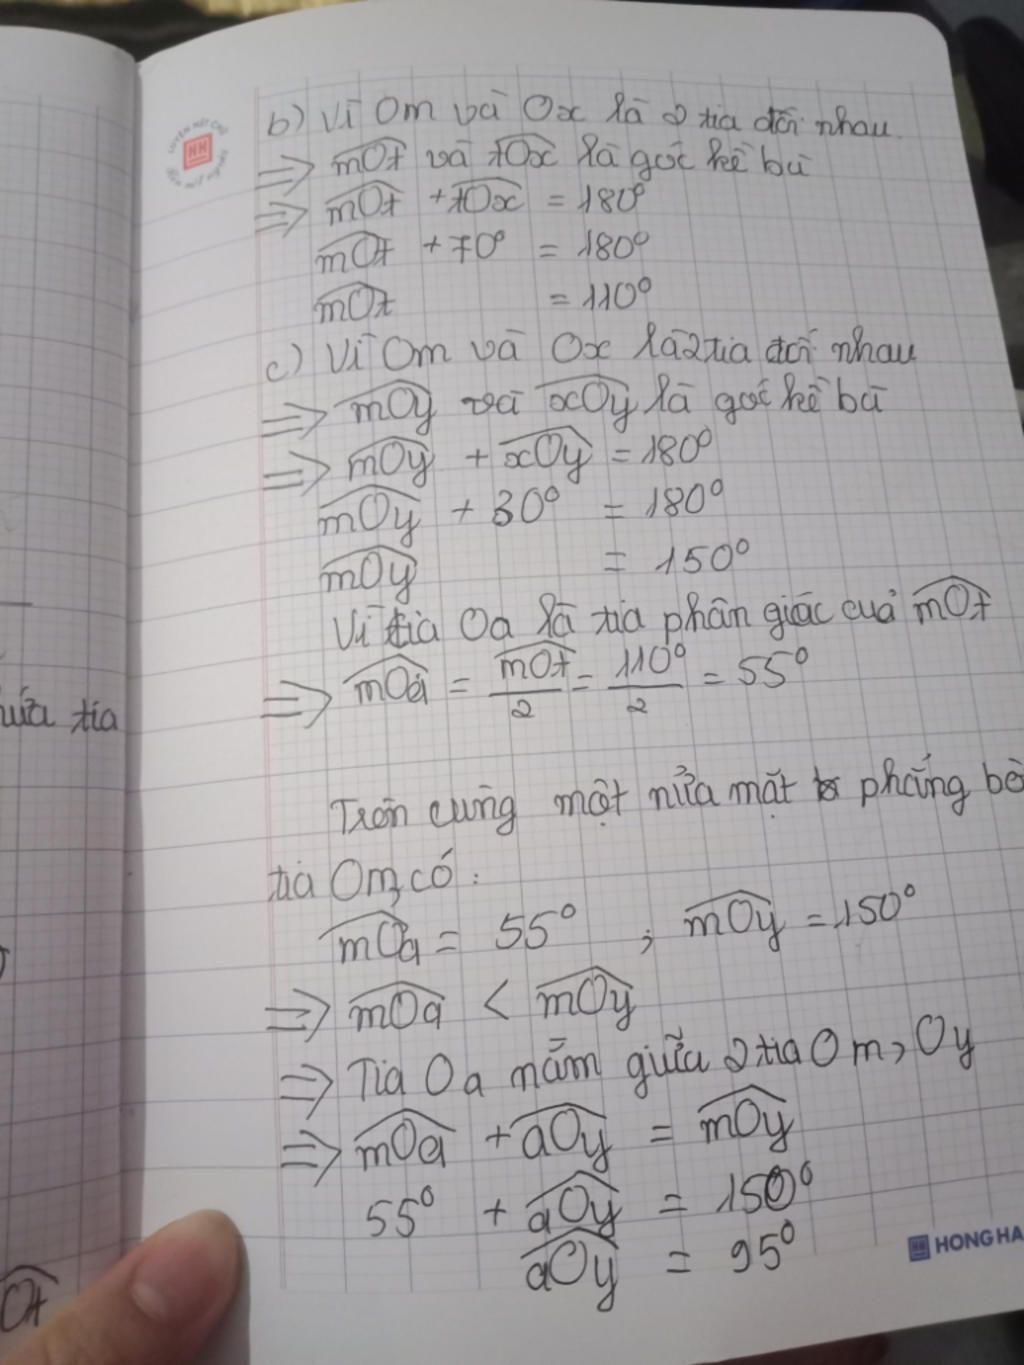 b) Vì Om và Ox là 2 tia đối nhau.
=> mOt và tOx là góc kề bù
=> mOt + tOx = 180°
mOt + 70° = 180°
mOt = 110°
c) Vì Om và Ox là 2 tia đối nhau
=> mOy và xOy là góc kề bù
=> mOy + xOy = 180°
mOy + 30° = 180°
mOy = 150°
Vì tia Oa là tia phân giác của mOt
=> mOa = mOt/2 = 110°/2 = 55°
ửa tia
Trên cùng một nửa mặt phẳng bờ
tia Om, có :
mOa = 55° ; mOy = 150°
=> mOa < mOy
=> Tia Oa nằm giữa 2 tia Om, Oy
=> mOa + aOy = mOy
55° + aOy = 150°
aOy = 95°
Ot
HONG HA